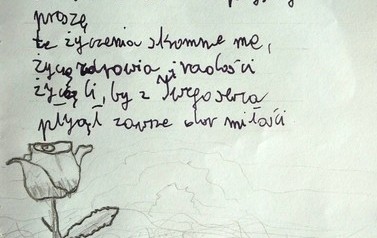 proszę
te życzenia skromne me,
życzę zdrowia i radości
życzę Ci, by z Twego serca
płynął zawsze chór miłości